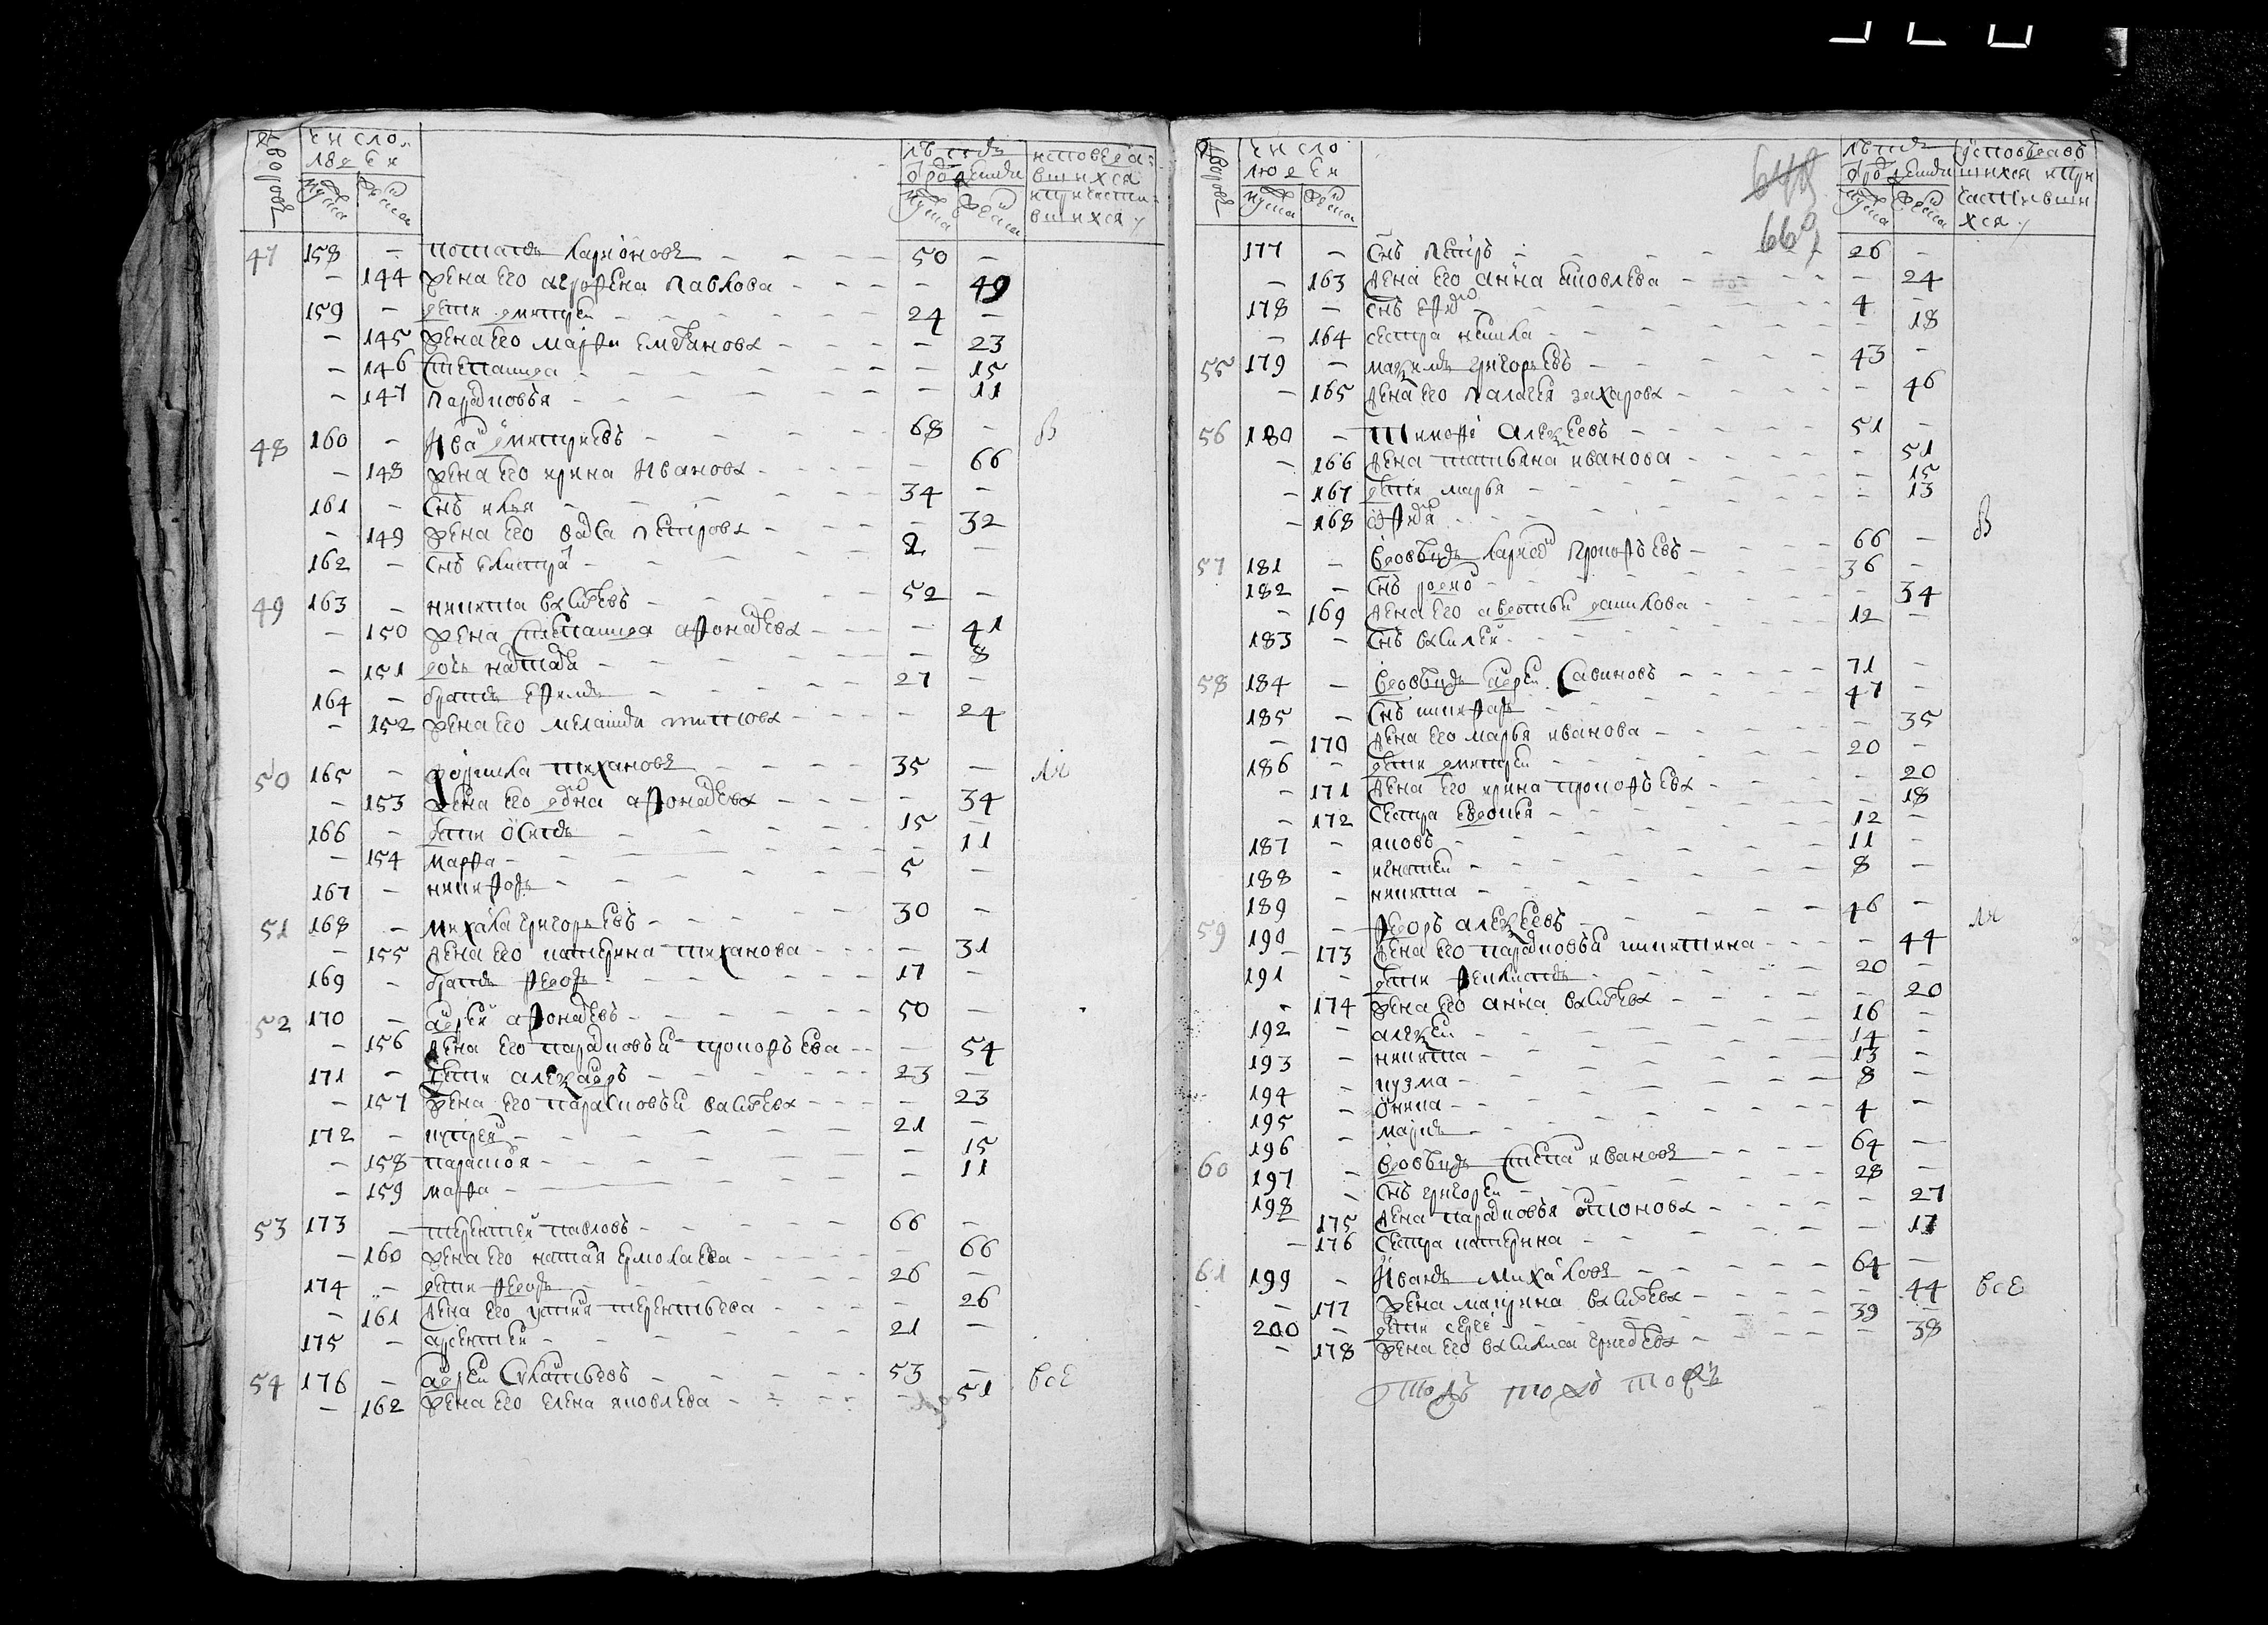 дворовъ
число людеи
мужеска женска
лѣтъ от рождения
мужеска женска
исповедавшихся и причастившихся
47 158 – потапъ ларионовъ – 50 –
– 144 жена его агрофена павлова – – 49
159 – дети дмитреи – 24 –
– 145 жена его марфа емел​ьянова – – 23
– 146 степанида – – 15
– 147 парасковья – – 11
48 160 – Иванъ дмитриевъ – 68 – в
– 148 жена его ирина Иванова – – 66
161 – снъ илья – 34 –
– 149 жена его васса петрова – – 32
162 – снъ –
49 163 – никита василевъ – 52 –
– 150 жена степанида афонасева – – 41
– 151 дочь наталя – – 8
164 – братъ ефимъ – 27 –
– 152 жена его меланья титова – – 24
50 165 – тиханов – 35 – ля
– 153 жена его афонасева – – 34
166 – дети осипъ – 15 –
– 154 марфа – – 11
167 – никифоръ – 5 –
51 168 – михаила григорьевъ – 30 –
– 155 жена его катерина тиханова – – 31
169 – братъ федоръ – 17 –
52 170 – андреи афонасевъ – 50 –
– 156 жена его парасковья прокофьева – – 54
171 – дети александръ – 23 –
– 157 жена его парасковья василева – – 23
172 – – 21 –
– 158 парасковя – – 15
– 159 марфа – – 11
53 173 – терентеи павловъ – 66 –
– 160 жена его наталя ермолаева – – 66
174 – дети федоръ – 26 –
– 161 жена его устиня терентьева – – 26
175 – арентеи – 21 –
54 176 – андреи – 53 – все
– 162 жена его елена яковлева – – 51
дворовъ
число людеи
мужеска женска
лѣтъ от рождения
мужеска женска
исповедавшихся и причастившихся
648
669
177 – снъ петръ – 26 –
– 163 жена его анна яковлева – – 24
178 – снъ – 4 –
– 164 сестра – – 18
55 179 – максимъ григорьевъ – 43 –
– 165 жена его палагея захарова – – 46
56 180 – тимофеи алексеевъ – 51 –
– 166 жена татьяна иванова – – 51
– 167 дети марья – – 15
– 168 – – 13
57 181 – вдовецъ прокофьевъ – 66 – в
182 – снъ родион – 36 –
– 169 жена его авдотья данилова – – 34
183 – снъ василеи – 12 –
58 184 – вдовецъ андреи савиновъ – 71 –
185 – снъ никифоръ – 47 –
– 170 жена его марья иванова – – 35
186 – дети дмитреи – 20 –
– 171 жена его ирина прокофьева – – 20
– 172 сестра – – 18
187 – яковъ – 12 –
188 – игнатеи – 11 –
189 – никита – 8 –
59 190 – федоръ алексеевъ – 46 – ля
– 173 жена его парасковья никитина – – 44
191 – дети феклистъ – 20 –
– 174 жена его анна василева – – 20
192 – алексеи – 16 –
193 – никита – 14 –
194 – кузма – 13 –
195 – – 8 –
196 – – 4 –
60 197 – вдовецъ степан иванов – 64 –
198 – снъ григореи – 28 –
– 175 жена парасковья – – 27
– 176 сестра катерина – – 17
61 199 – Иванъ михаилов – 64 – все
– 177 жена матрина василева – – 44
200 – дети сергеи – 39 –
– 178 жена его василиса – – 38